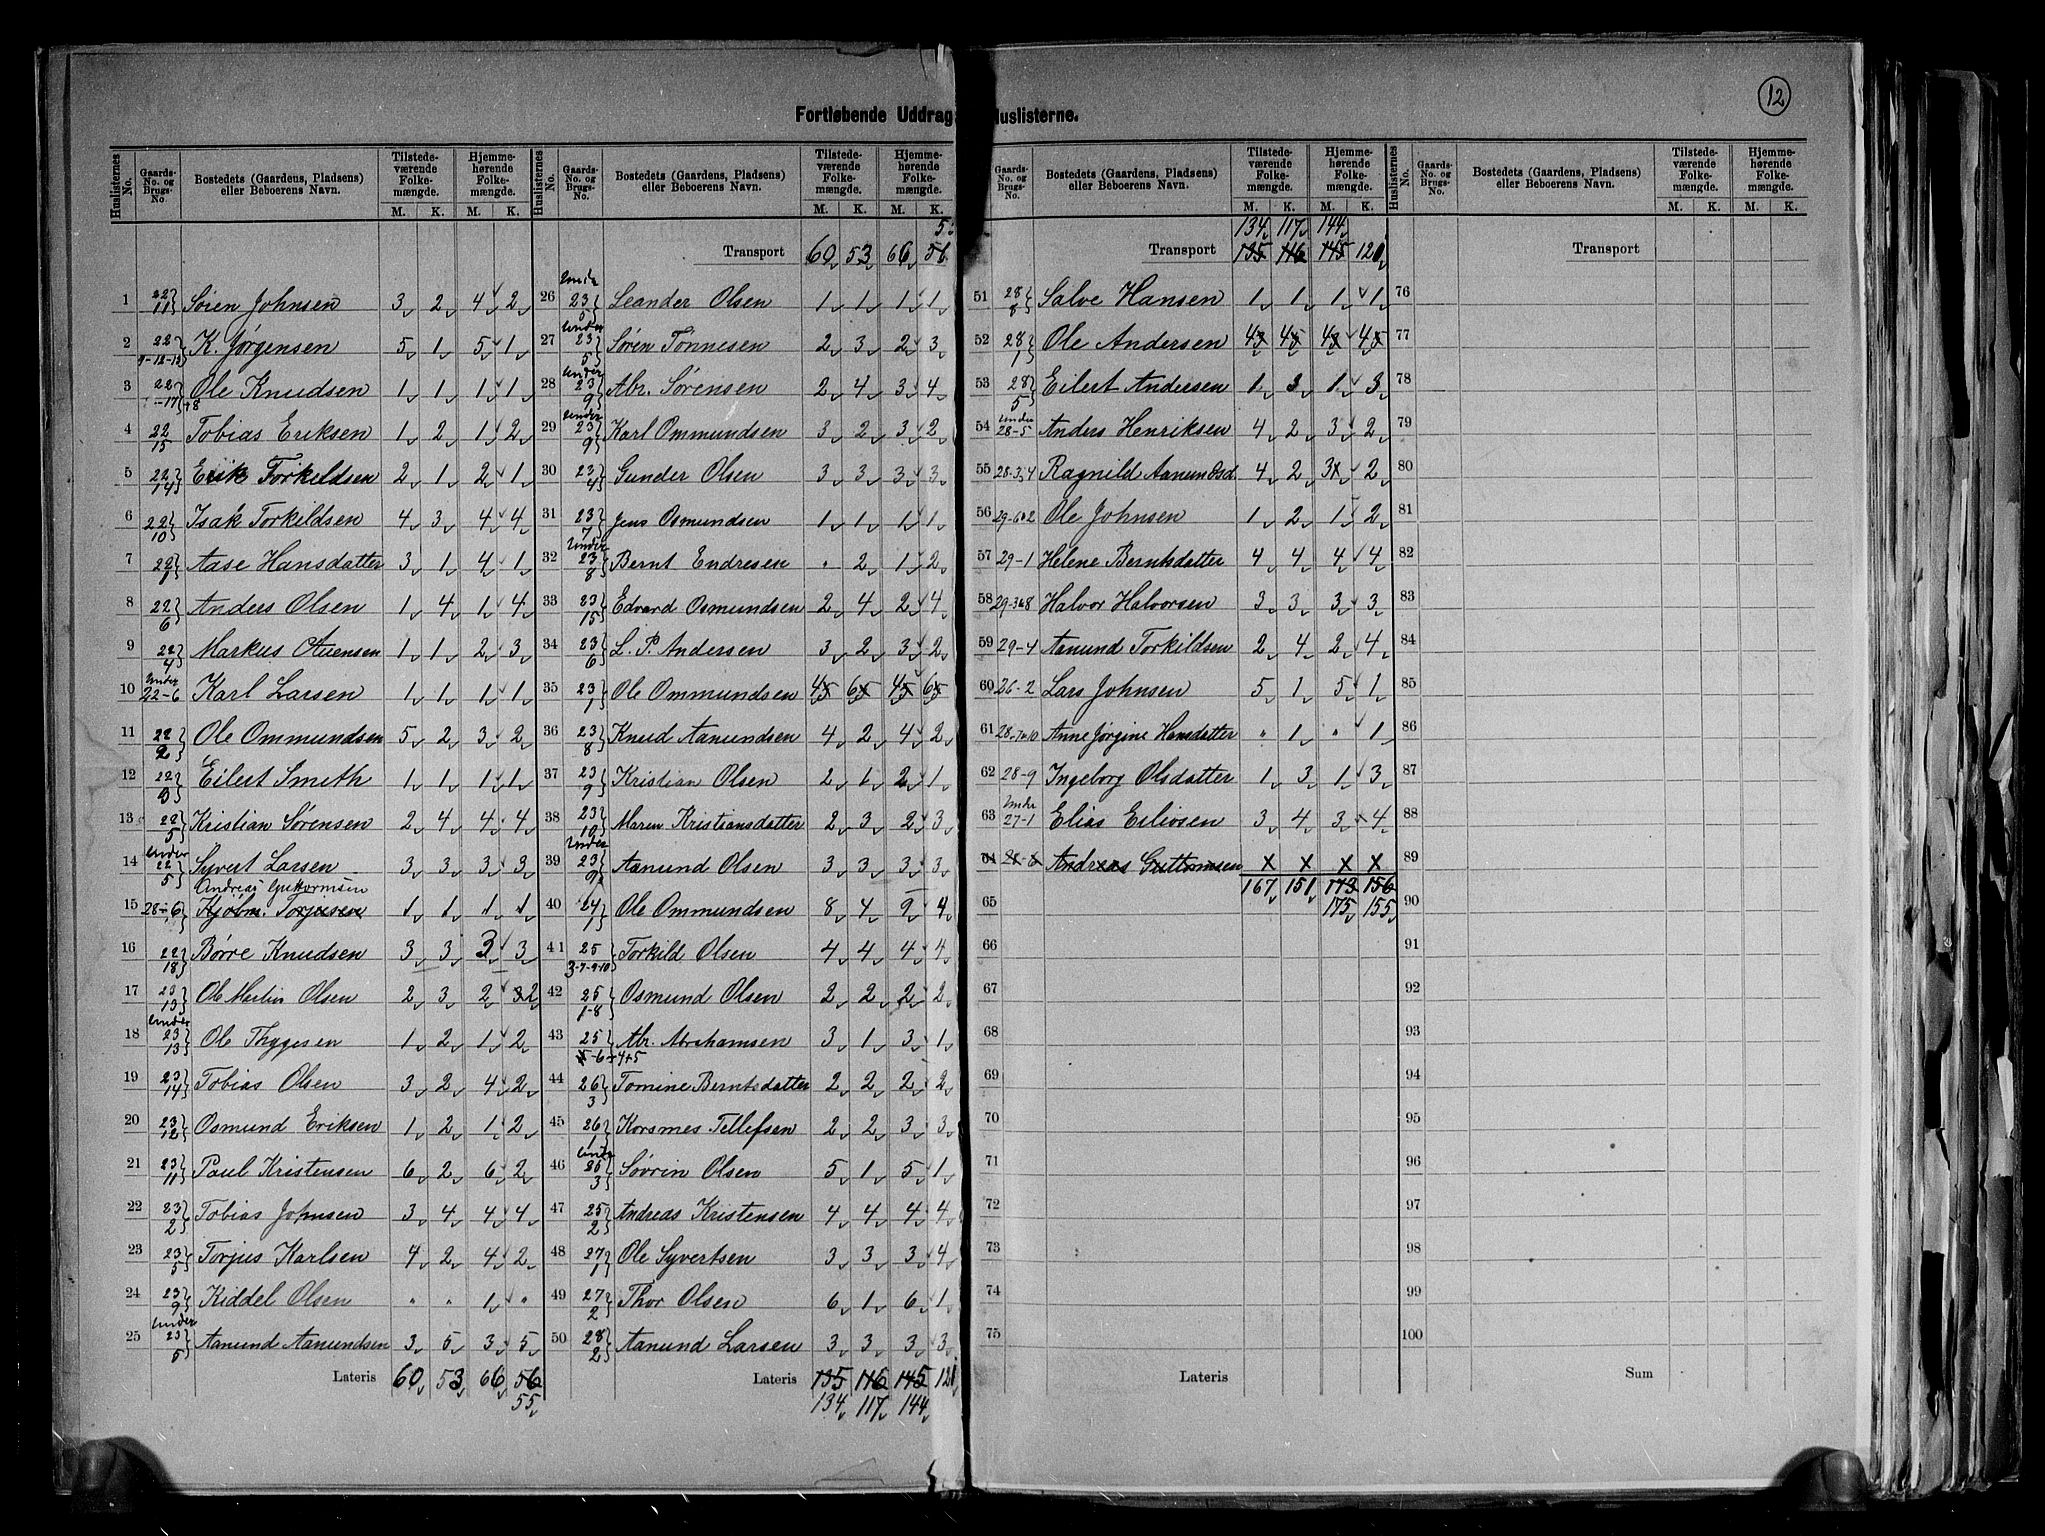 12
Fortløbende Uddrag Huslisterne.
Huslisternes No. Gaards-No. og Brugs-No. Bostedets (Gaardens, Pladsens) eller Beboerens Navn. Tilstedeværende Folkemængde. M. K. Hjemmehørende Folkemængde. M. K.
1 22/11 Søren Johnsen 3 2 4 2
2 22/9-12-13 K. Jørgensen 5 1 5 1
3 22 Ole Knudsen 1 1 1 1
4 22/15 Tobias Eriksen 1 2 1 2
5 22/14 Erik Torkeldsen 2 1 2 1
6 22/10 Isak Torkildsen 4 3 4 4
7 22/1 Aase Hansdatter 3 1 4 1
8 22/6 Anders Olsen 1 4 1 4
9 22/4 Markus Auensen 1 1 2 3
10 Under 22-6 Karl Larsen 1 1 1 1
11 22/2 Ole Ommundsen 5 2 3 2
12 22/3 Eilert Smith 1 1 1 1
13 22/5 Kristian Sørensen 2 4 4 4
14 Under 22/5 Syvert Larsen 3 3 3 3
Andreas Guttormsen
15 28-6 Kjøbm. Torjusen 1 1 1 1
16 22/18 Børre Knudsen 3 3 3 3
17 23/13 Ole Martin Olsen 2 3 2 3 2
18 Under 23/13 Ole Thygesen 1 2 1 2
19 23/14 Tobias Olsen 3 2 4 2
20 23/12 Osmund Eriksen 1 2 1 2
21 23/11 Paul Kristensen 6 2 6 2
22 23/2 Tobias Johnsen 3 4 4 4
23 23/5 Torjus Karlsen 4 2 4 2
24 23/9 Kiddel Olsen " " 1 "
25 Under 23/5 Aanund Aanundsen 3 5 3 5
Lateris 60 53 66 56
55
Huslisternes No. Gaards-No. og Brugs-No. Bostedets (Gaardens, Pladsens) eller Beboerens Navn. Tilstedeværende Folkemængde. M. K. Hjemmehørende Folkemængde. M. K.
Transport 60 53 66 56
26 Under 23/5 Leander Olsen 1 1 1 1
27 Under 23/5 Søren Tønnesen 2 3 2 3
28 Under 23/9 Abr. Sørensen 2 4 3 4
29 Under 23/9 Karl Ommundsen 3 2 3 2
30 23/4 Gunder Olsen 3 3 3 3
31 23/7 Jens Osmundsen 1 1 1 1
32 Under 23/8 Bernt Endresen " 2 1 2
33 23/15 Edvard Osmundsen 2 4 2 4
34 23/6 L. P. Andersen 3 2 3 2
35 23/1 Ole Ommundsen 4 5 6 5 4 5 6 5
36 23/8 Knud Aanundsen 4 2 4 2
37 23/9 Kristian Olsen 2 1 2 1
38 23/10 Maren Kristiansdatter 2 3 2 3
39 Under 23/9 Aanund Olsen 3 3 3 3
40 24/1 Ole Ommundsen 8 4 9 4
41 25/3-7-9-10 Torkild Olsen 4 4 4 4
42 25/1-8 Osmund Olsen 2 2 2 2
43 25/5-6+4+5 Abr. Abrahamsen 3 1 3 1
44 26/3 Tomine Berntsdatter 2 2 2 2
45 26/1 Korsmes Tellefsen 2 2 3 3
46 Under Søvrin Olsen 5 1 5 1
47 25/2 Andreas Kristensen 4 4 4 4
48 27/1 Ole Syvertsen 3 3 3 4
49 27/2 Thor Olsen 6 1 6 1
50 28/2 Aanund Larsen 3 3 3 3
Lateris 135 116 145 121
134 117 144
Gaards-No. og Brugs-No. Bostedets (Gaardens, Pladsens) eller Beboerens Navn. Tilstedeværende Folkemængde. M. K. Hjemmehørende Folkemængde. M. K.
134 117 144
Transport 135 116 145 121
51 28/8 Salve Hansen 1 1 1 1
52 28/1 Ole Andersen 4 3 4 5 4 3 4 5
53 28/5 Eilert Andersen 1 3 1 3
54 Under 28-5 Anders Henriksen 4 2 3 2
55 28-3,4 Ragnild Aanundsd. 4 2 3 2
56 29-6 Ole Johnsen 1 2 1 2
57 29-1 Helene Berntsdatter 4 4 4 4
58 29-3&8 Halvor Halvorsen 3 3 3 3
59 29-4 Aanund Torkildsen 2 4 2 4
60 26-2 Lars Johnsen 5 1 5 1
61 28-7&10 Anne Jørgine Hansdatter " 1 " 1
62 28-9 Ingeborg Olsdatter 1 3 1 3
63 Under 27-1 Elias Eilivsen 3 4 3 4
64 28-6 Andreas Guttormsen x x x x
167 151 173 156
65 175 155
66
67
68
69
70
71
72
73
74
75
Lateris
Huslisternes No. Gaards-No. og Brugs-No. Bostedets (Gaardens, Pladsens) eller Beboerens Navn. Tilstedeværende Folkemængde. M. K. Hjemmehørende Folkemængde. M. K.
Transport
76
77
78
79
80
81
82
83
84
85
86
87
88
89
90
91
92
93
94
95
96
97
98
99
100
Sum